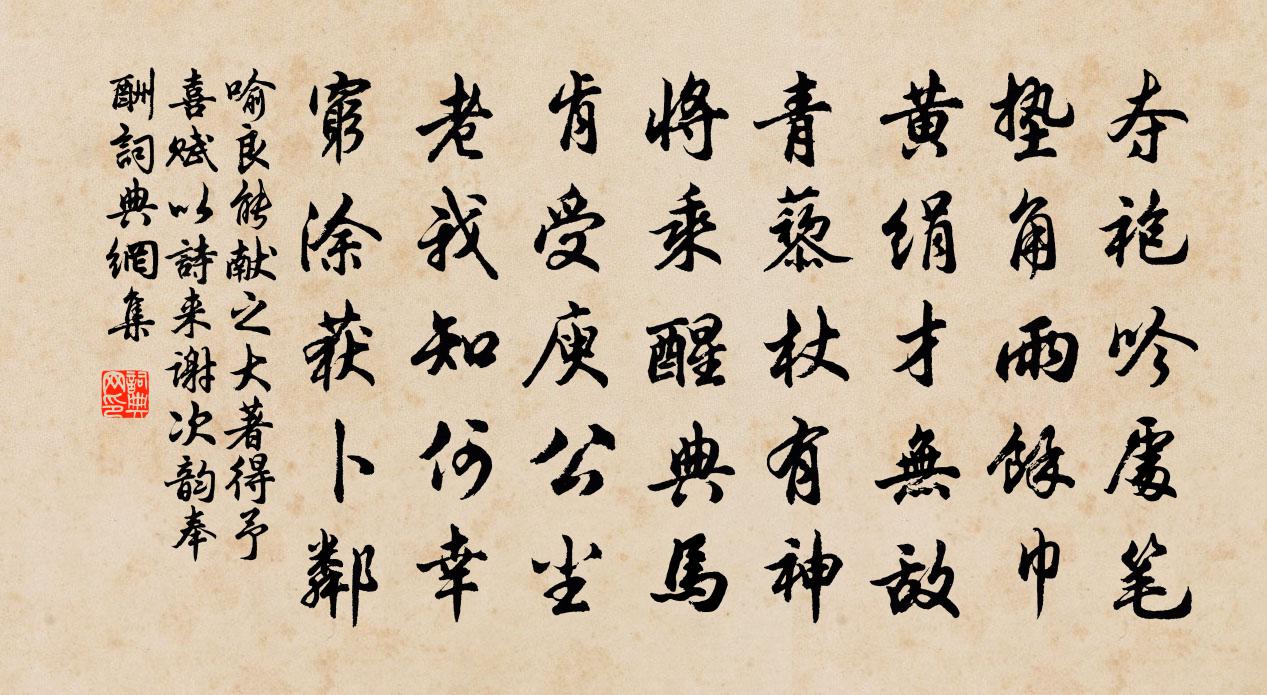 夺袍吟處笔
垫角雨餘巾
黄绢才無敌
青藜杖有神
将乘醒典馬
肯受庾公尘
老我知何幸
窮涂获卜鄰
喻良能献之大著得予
喜赋以詩来谢次韵奉
酬詞典網集
詞典
网印